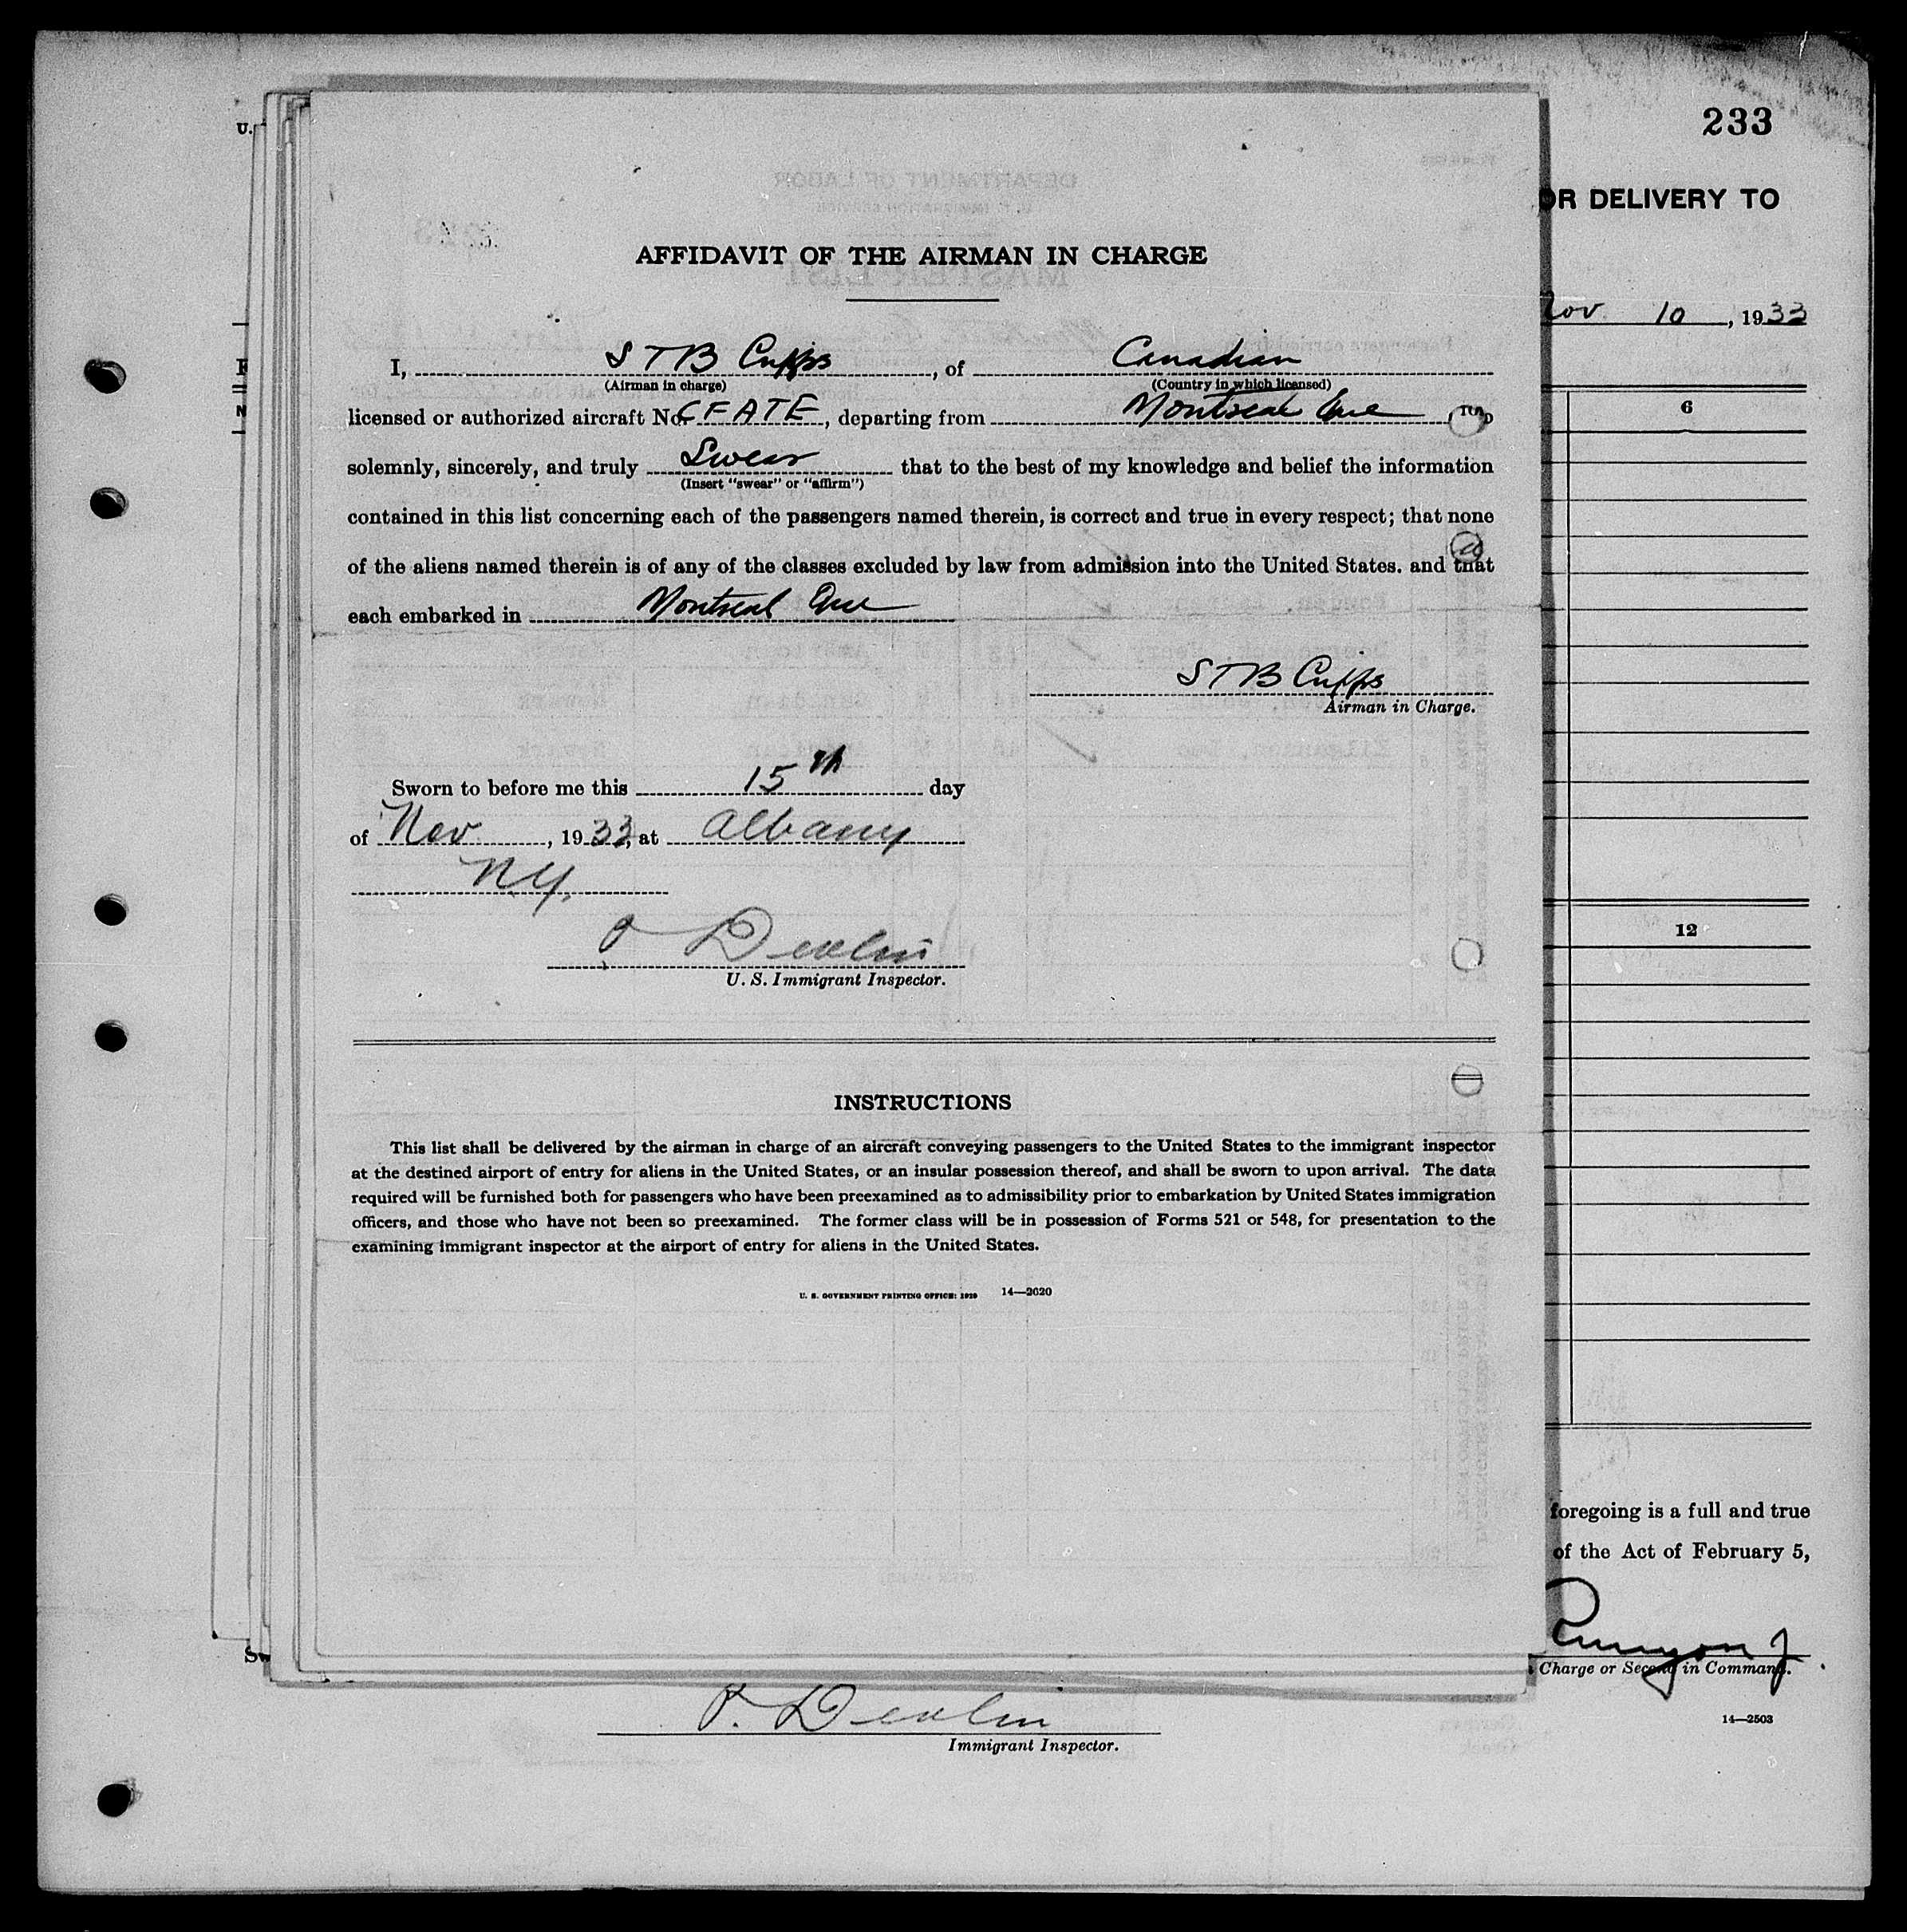 233
U.
OR DELIVERY TO
AFFIDAVIT OF THE AIRMAN IN CHARGE
Nov 10, 1933
I, S T B Cupps, of Canadian
(Airman in charge) (Country in which licensed)
licensed or authorized aircraft No. CFATE, departing from Montreal Que, do
solemnly, sincerely, and truly Swear that to the best of my knowledge and belief the information
(Insert "swear" or "affirm")
contained in this list concerning each of the passengers named therein, is correct and true in every respect; that none
of the aliens named therein is of any of the classes excluded by law from admission into the United States. and that
each embarked in Montreal Que
S T B Cupps
Airman in Charge.
Sworn to before me this 15th day
of Nov, 1933, at Albany
N.Y.
Devlin
U. S. Immigrant Inspector.
INSTRUCTIONS
This list shall be delivered by the airman in charge of an aircraft conveying passengers to the United States to the immigrant inspector
at the destined airport of entry for aliens in the United States, or an insular possession thereof, and shall be sworn to upon arrival. The data
required will be furnished both for passengers who have been preexamined as to admissibility prior to embarkation by United States immigration
officers, and those who have not been so preexamined. The former class will be in possession of Forms 521 or 548, for presentation to the
examining immigrant inspector at the airport of entry for aliens in the United States.
U. S. GOVERNMENT PRINTING OFFICE: 1929 14—2020
6
12
foregoing is a full and true
of the Act of February 5,
Runyon J
Charge or Second in Command.
14—2503
Devlin
Immigrant Inspector.